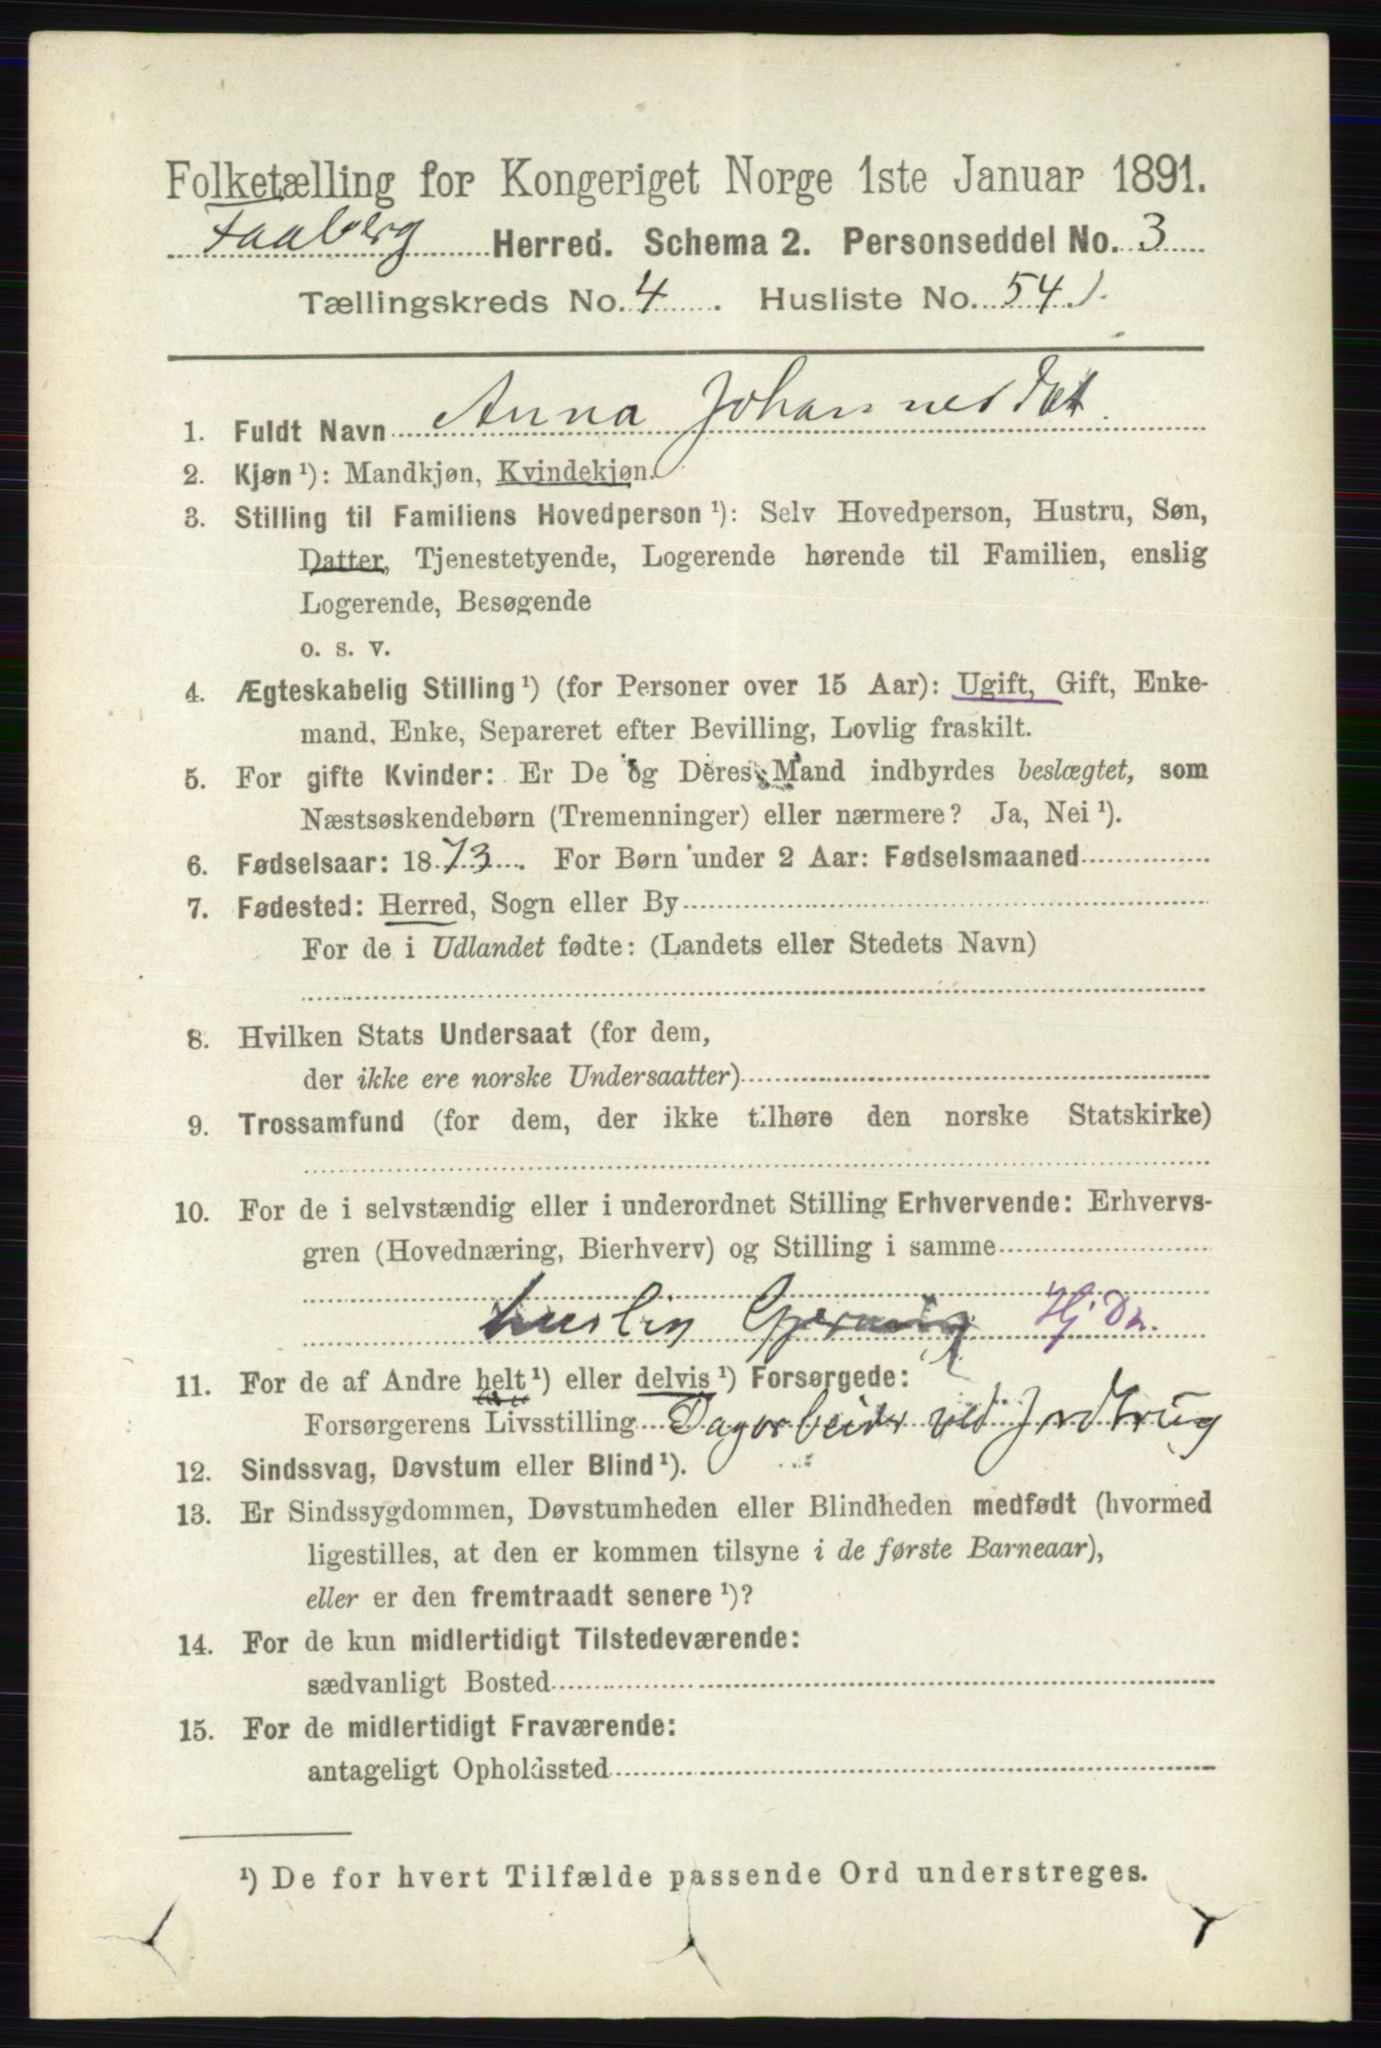 Folketælling for Kongeriget Norge 1ste Januar 1891.
Faaberg Herred. Schema 2. Personseddel No. 3
Tællingskreds No. 4. Husliste No. 54
1. Fuldt Navn Anna Johannesdat.
2. Kjøn ¹): Mandkjøn, Kvindekjøn.
3. Stilling til Familiens Hovedperson ¹): Selv Hovedperson, Hustru, Søn,
Datter, Tjenestetyende, Logerende hørende til Familien, enslig
Logerende, Besøgende
o. s. v.
4. Ægteskabelig Stilling ¹) (for Personer over 15 Aar): Ugift, Gift, Enke-
mand, Enke, Separeret efter Bevilling, Lovlig fraskilt.
5. For gifte Kvinder: Er De og Deres Mand indbyrdes beslægtet, som
Næstsøskendebørn (Tremenninger) eller nærmere? Ja, Nei ¹).
6. Fødselsaar: 1873. For Børn under 2 Aar: Fødselsmaaned
7. Fødested: Herred, Sogn eller By
For de i Udlandet fødte: (Landets eller Stedets Navn)
8. Hvilken Stats Undersaat (for dem,
der ikke ere norske Undersaatter)
9. Trossamfund (for dem, der ikke tilhøre den norske Statskirke)
10. For de i selvstændig eller i underordnet Stilling Erhvervende: Erhvervs-
gren (Hovednæring, Bierhverv) og Stilling i samme
huslig Gjerning Hj. Da.
11. For de af Andre helt ¹) eller delvis ¹) Forsørgede:
Forsørgerens Livsstilling Dagarbeider ved Jordbrug
12. Sindssvag, Døvstum eller Blind ¹).
13. Er Sindssygdommen, Døvstumheden eller Blindheden medfødt (hvormed
ligestilles, at den er kommen tilsyne i de første Barneaar),
eller er den fremtraadt senere ¹)?
14. For de kun midlertidigt Tilstedeværende:
sædvanligt Bosted
15. For de midlertidigt Fraværende:
antageligt Opholdssted
¹) De for hvert Tilfælde passende Ord understreges.